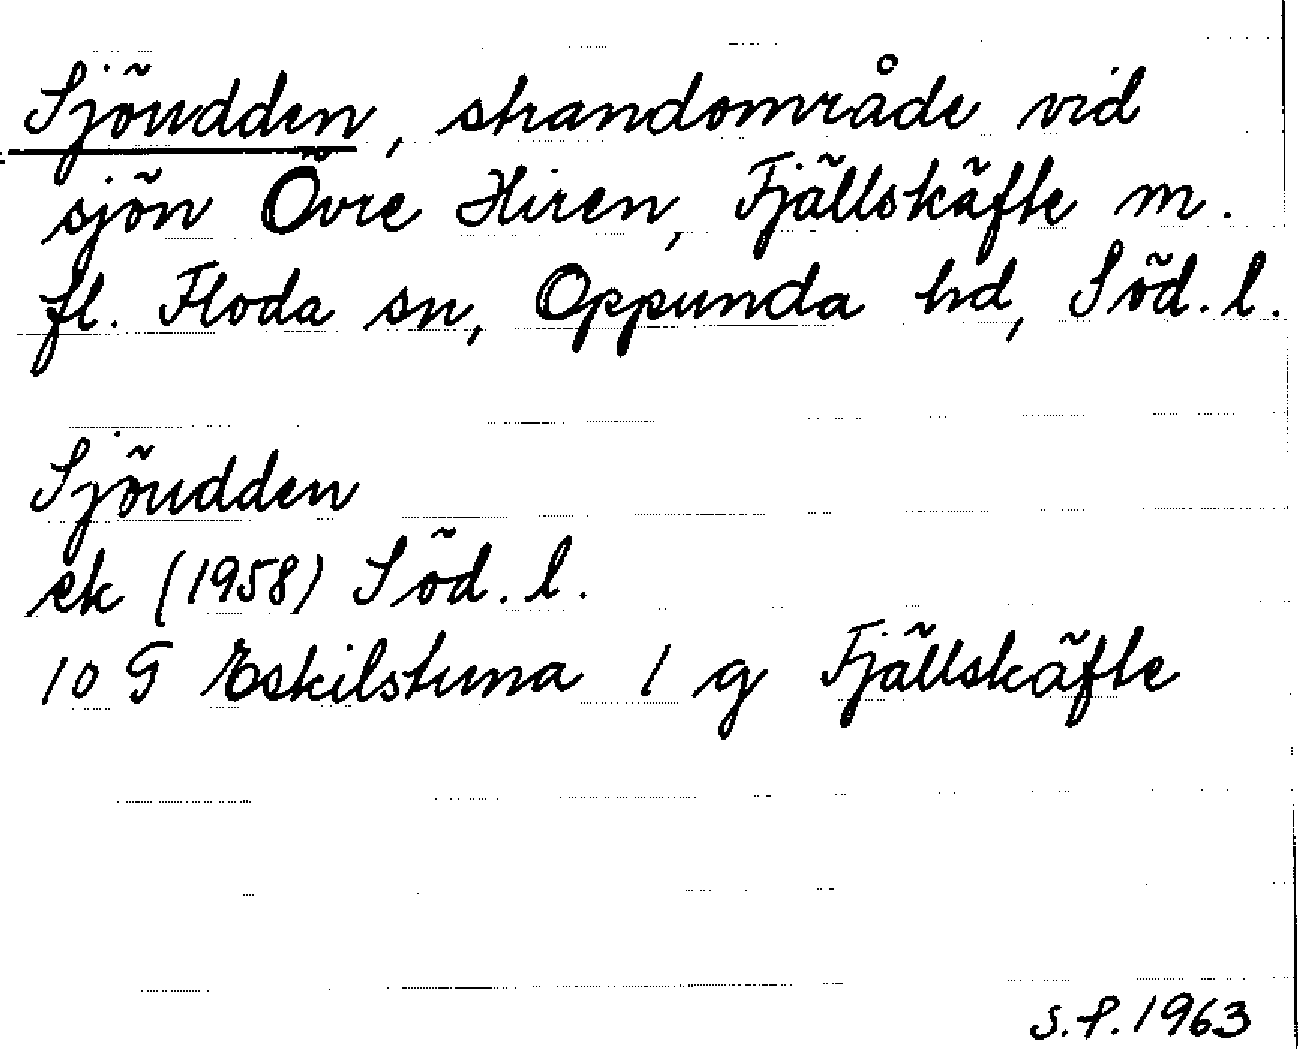 Sjöudden, strandområde vid
sjön Övre Hiren, Fjällskäfte m.
fl. Floda sn, Oppunda hd, Söd. l.
Sjöudden
ek (1958) Söd. l.
10 G Eskilstuna 1 g Fjällskäfte
S.P. 1963